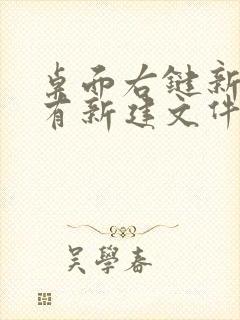 桌面右键新
有新建文件
吴學春